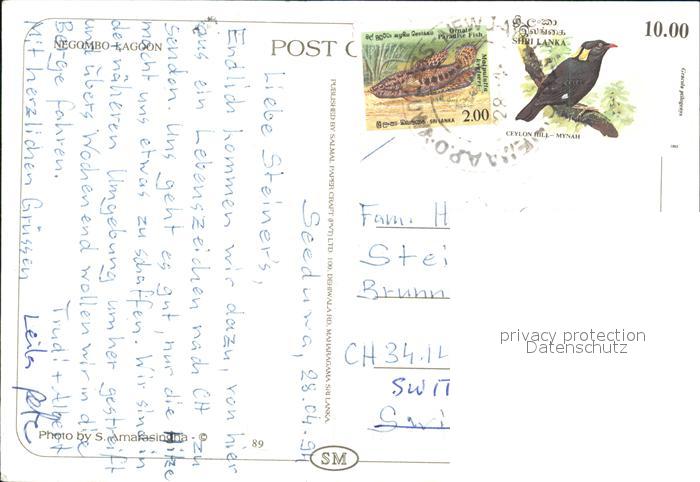 NEGOMBO LAGOON
POST C
Seeduwa, 28.04.94
Liebe Steiner's,
Endlich kommen wir dazu, von hier
aus ein Lebenszeichen nach CH zu
senden. Uns geht es gut, nur die Hitze
macht uns etwas zu schaffen. Wir sind in
der näheren Umgebung umher gestreift
und übers Wochenend wollen wir in die
Berge fahren.
Mit herzlichen Grüssen
Trudi + Albert
Leila
PUBLISHED BY SALMAL PAPER CRAFT (PVT) LTD. 100, DEHIWALA RD, MAHARAGAMA SRI LANKA
Photo by S. Amarasingha - ©
89
SM
ශ්‍රී ලංකා
இலங்கை
SRI LANKA
10.00
Gracula ptilogenys
CEYLON HILL - MYNAH
Ornate
Paradise Fish
Malpulutta
kretseri
ශ්‍රී ලංකා இலங்கை SRI LANKA
2.00
Fam. H
Stei
Brunn
CH 34.14
SWIT
Swi
privacy protection
Datenschutz